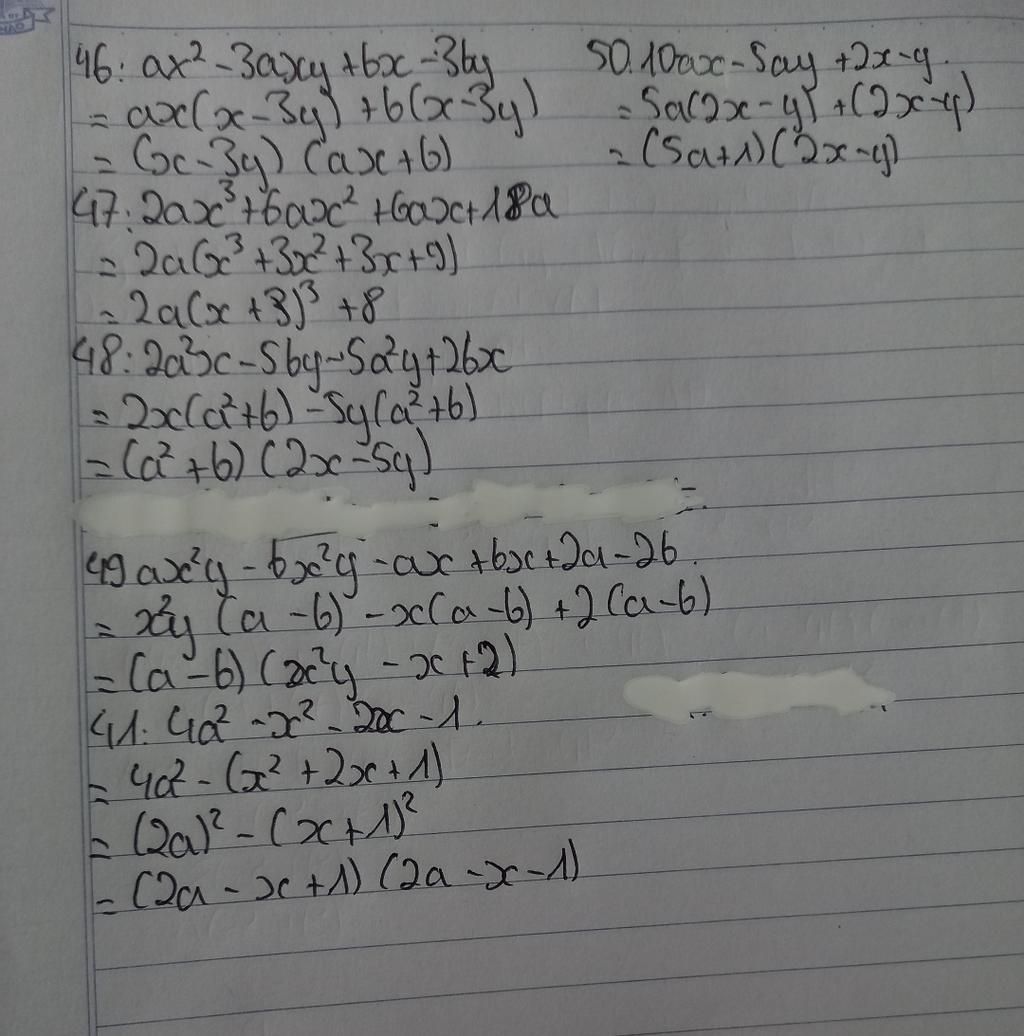 46: ax² - 3axy + bx - 3by
= ax(x - 3y) + b(x - 3y)
= (x - 3y) (ax + b)
47: 2ax³ + 6ax² + 6ax + 18a
= 2a(x³ + 3x² + 3x + 9)
= 2a(x + 3)³ + 8
48: 2a²x - 5by - 5a²y + 2bx
= 2x(a² + b) - 5y(a² + b)
= (a² + b) (2x - 5y)
49 ax²y - bx²y - ax + bx + 2a - 2b.
= x²y (a - b) - x(a - b) + 2(a - b)
= (a - b) (x²y - x + 2)
41: 4a² - x² - 2x - 1.
= 4a² - (x² + 2x + 1)
= (2a)² - (x + 1)²
= (2a - x + 1) (2a - x - 1)
50. 10ax - 5ay + 2x - y.
= 5a(2x - y) + (2x - y)
= (5a + 1) (2x - y)